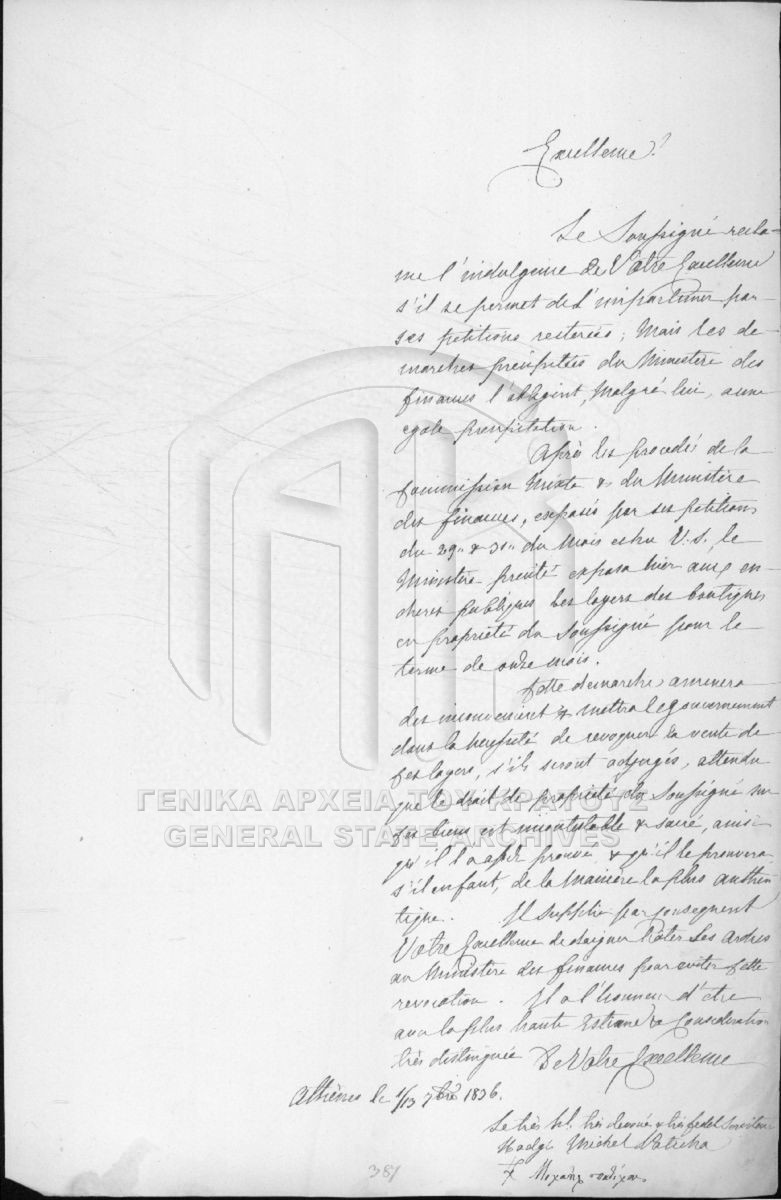 Excellence!
Le Soussigné recla-
me l'indulgence de Votre Excellence
s'il se permet de l'importuner par
ses petitions reiterées; Mais les de-
marches precipitées du Ministere des
finances l'obligent, Malgré lui, a une
egale precipitation.
Après les procedés de la
Commission Mixte & du Ministère
des finances, exposés par ses petitions
du 29 & 31 du Mois echu V.S., le
Ministere precité exposa hier aux en-
cheres publiques les loyers des boutiques
en propriété du Soussigné pour le
terme de onze mois.
Cette demarche amenera
des inconvenient & mettra le gouvernement
dans la necessité de revoquer la vente de
ces loyers, s'ils seront adjugés, attendu
que le droit de propriété du Soussigné sur
ses biens est incontestable & sacré, ainsi
qu'il l'a assez prouvé, & qu'il le prouvera
s'il en faut, de la Maniere la plus authen-
tique. Il supplie par consequent
Votre Excellence de daigner hâter Ses ordres
au Ministère des finances pour eviter cette
revocation. Il a l'honneur d'etre
avec la plus haute Estime & Consideration
très distinguée De Votre Excellence
Athènes le 1/13 7bre 1836.
Le très hl. très devoué & très fedel Serviteur
Hadgi Michel
387
ΓΕΝΙΚΑ ΑΡΧΕΙΑ ΤΟΥ ΚΡΑΤΟΥΣ
GENERAL STATE ARCHIVES